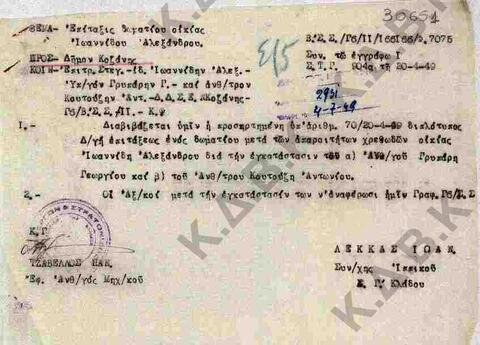 30651
ΘΕΜΑ- Ἐπίταξις δωματίου οἰκίας
Ἰωαννίδου Ἀλεξάνδρου.
Β΄Σ Σ,/Γ6/ΙΙ/166166/2.7075
Συν. τῷ ἐγγράφῳ Ι
Σ.Τ.Γ. 904α τῇ 20-4-49
ΠΡΟΣ- Δῆμον Κοζάνης
ΚΟΙΝ- Ἐπιτρ.Στεγ.-ἰδ.Ἰωαννίδην Ἀλεξ.-
Ὑπ/γόν Γρυπάρην Γ.- καί ἀνθ/τρον
Κουτούζην Ἀντ.-Δ.Δ.Σ.Σ.ΧΚοζάνης-
Γ6/Β΄Σ Σ,/ΙΙ.- Κ.Φ
Ε15
2951
4-7-49
1.- Διαβιβάζεται ὑμῖν ἡ προσηρτημένη ὑπ'ἀριθμ. 70/20-4-49 διπλότυπος
Δ/γή ἐπιτάξεως ἑνός δωματίου μετά τῶν ἀπαραιτήτων χρειωδῶν οἰκίας
Ἰωαννίδη Ἀλεξάνδρου διά τήν ἐγκατάστασιν τοῦ α) Ἀνθ/γοῦ Γρυπάρη
Γεωργίου καί β) τοῦ Ἀνθ/τρου Κουτούζη Ἀντωνίου.
2.- Οἱ Ἀξ/κοί μετά τήν ἐγκατάστασίν των ν'ἀναφέρωσι ἡμῖν Γραφ. Γ6/Σ Σ
Κ.Γ
ΤΖΑΒΕΛΛΟΣ ΗΛΚ.
Ἐφ. Ἀνθ/γός Μηχ/κοῦ
ΛΕΚΚΑΣ ΙΩΑΝ.
Συν/χης Ἱππικοῦ
Δ. Γ΄ Κλάδου
Κ.Δ.Β.Κ
Κ.Δ.Β.Κ